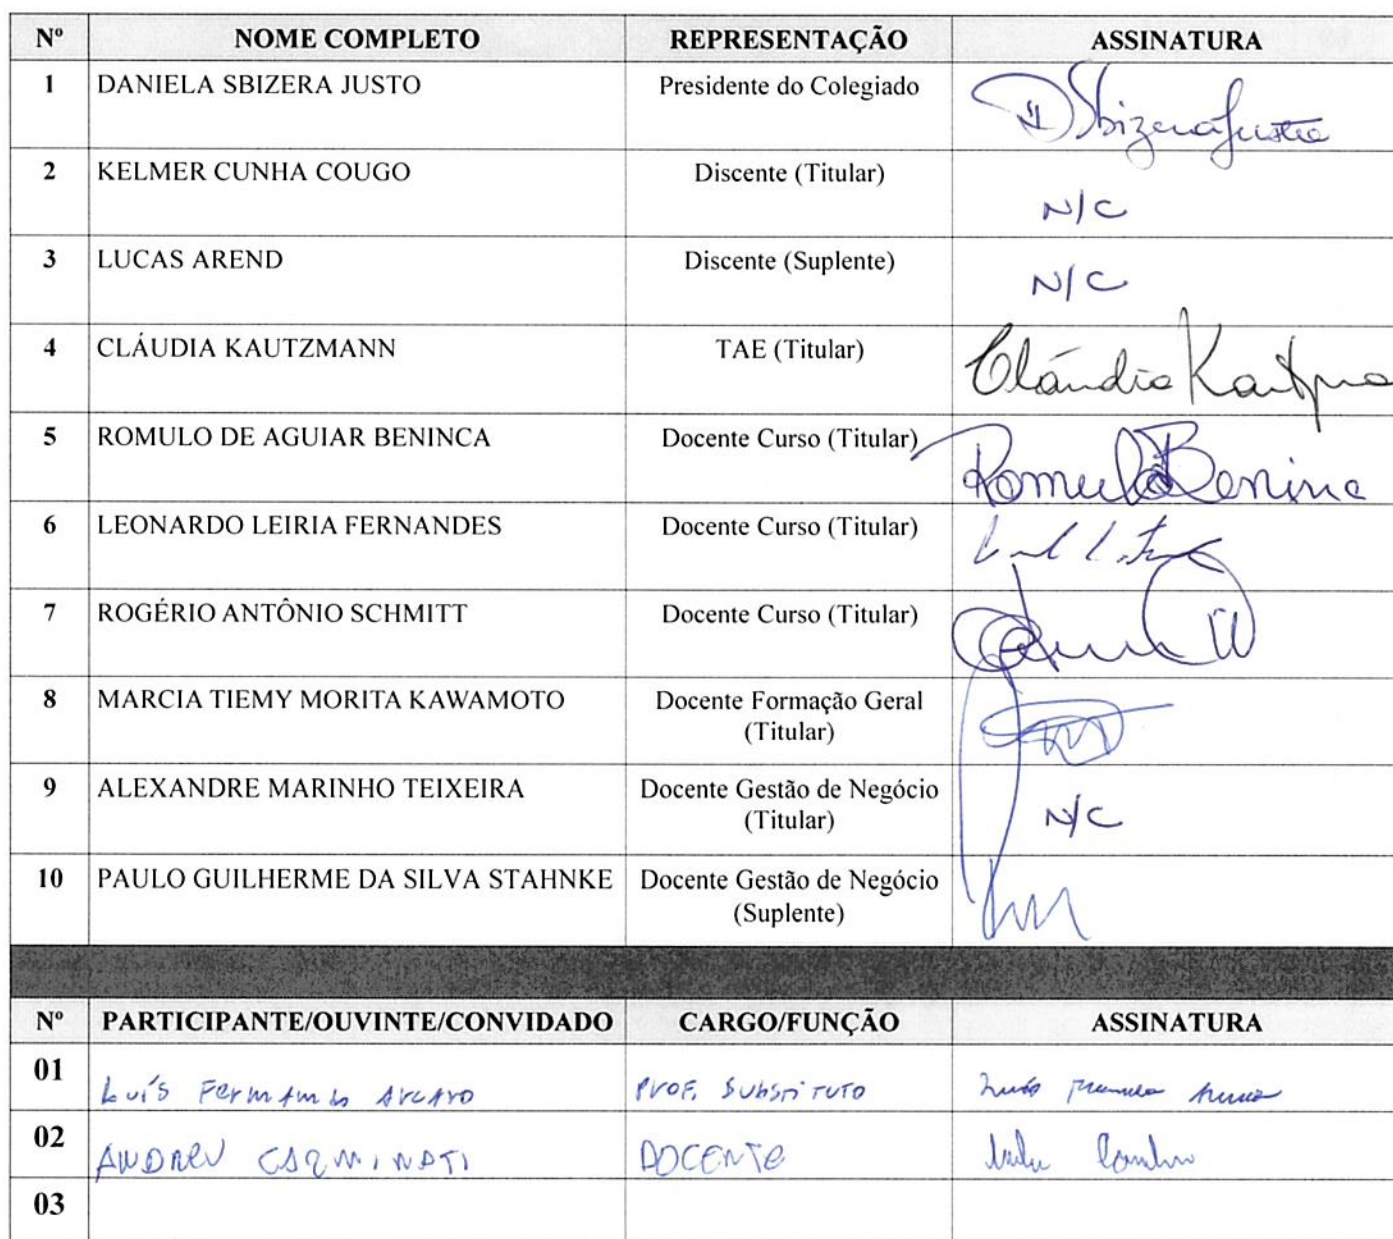 Nº NOME COMPLETO REPRESENTAÇÃO ASSINATURA
1 DANIELA SBIZERA JUSTO Presidente do Colegiado DSbizeraJusto
2 KELMER CUNHA COUGO Discente (Titular) N/C
3 LUCAS AREND Discente (Suplente) N/C
4 CLÁUDIA KAUTZMANN TAE (Titular) Cláudia
5 ROMULO DE AGUIAR BENINCA Docente Curso (Titular) Romulo Beninca
6 LEONARDO LEIRIA FERNANDES Docente Curso (Titular)
7 ROGÉRIO ANTÔNIO SCHMITT Docente Curso (Titular)
8 MARCIA TIEMY MORITA KAWAMOTO Docente Formação Geral
(Titular)
9 ALEXANDRE MARINHO TEIXEIRA Docente Gestão de Negócio N/C
(Titular)
10 PAULO GUILHERME DA SILVA STAHNKE Docente Gestão de Negócio
(Suplente)
Nº PARTICIPANTE/OUVINTE/CONVIDADO CARGO/FUNÇÃO ASSINATURA
01 Luís Fernando Arcaro Prof. Substituto
02 ANDREU CARMINATI DOCENTE
03